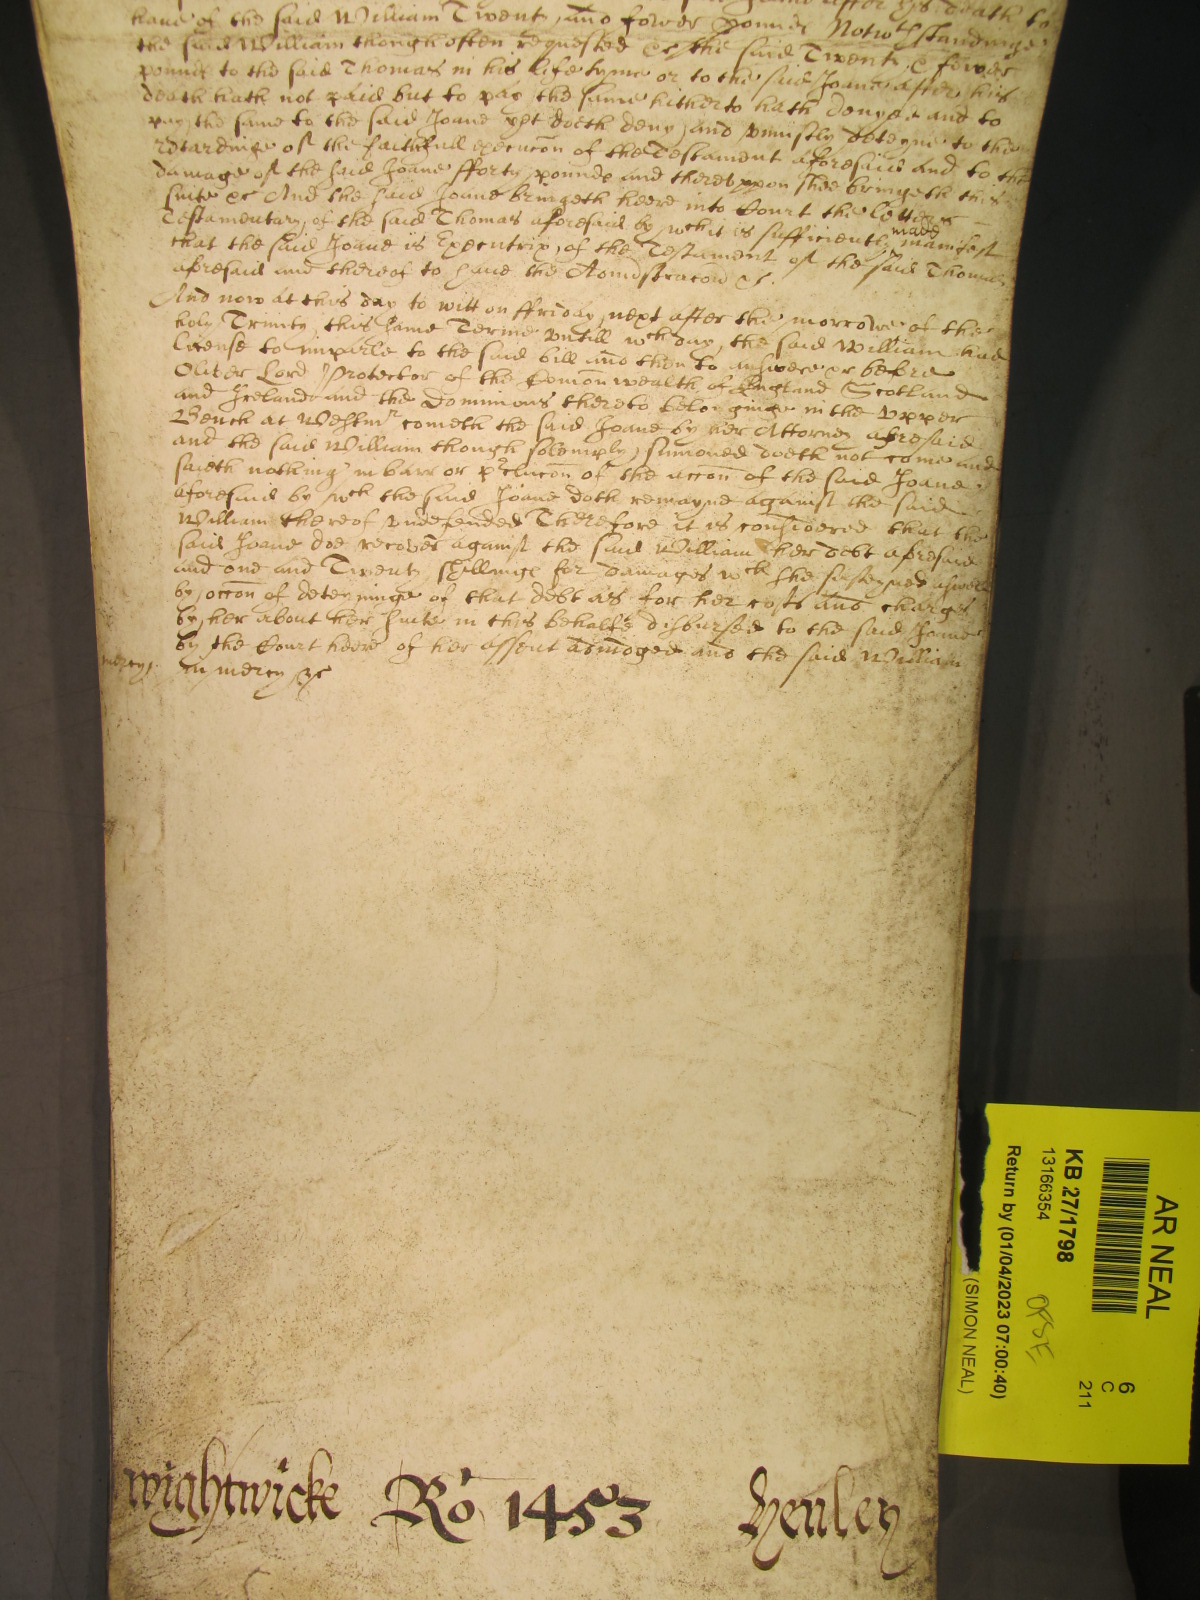 after his death to
have of the said William Twenty and fower pounds Notwthstandinge
the said William though often requested &c the said Twenty & fower
pounds to the said Thomas in his life tyme or to the said Joane after his
death hath not paid but to pay the same hitherto hath denyed and to
pay the same to the said Joane yet doeth deny and uniustly deteyne to the
retardinge of the faithfull execucon of the Testament aforesaid And to the
damage of the said Joane fforty pounds and thereuppon shee bringeth this
suite &c And the said Joane bringeth heere into Court the letters
Testamentary of the said Thomas aforesaid by wch it is sufficiently made manifest
that the said Joane is Executrix of the Testament of the said Thomas
aforesaid and thereof to have the Admistracon &c.
And now at this day to witt on ffriday next after the morrowe of the
holy Trinity this same Terme untill wch day the said William had
license to imparle to the said bill and then to answere &c before
Oliver Lord Protector of the Comon wealth of England Scotland
and Ireland and the Dominions thereto belonginge in the upper
Bench at Westmr cometh the said Joane by her Attorney aforesaid
and the said William though solemply sumoned doeth not come and
saieth nothing in barr or pclucon of the accon of the said Joane
aforesaid by wch the said Joane doth remayne against the said
William thereof undefended Therefore it is considered that the
said Joane doe recover against the said William her debt aforesaid
and one and Twenty shillings for damages wch she susteyned aswell
by occon of deteyninge of that debt as for her costs and charges
by her about her suite in this behalfe disbursed to the said Joane
by the Court heere of her assent adiudged and the said William
mercy. in mercy &c
wightwicke Ro 1453 Henley
AR NEAL
KB 27/1798
13166354
Return by (01/04/2023 07:00:40)
(SIMON NEAL)
6
C
211